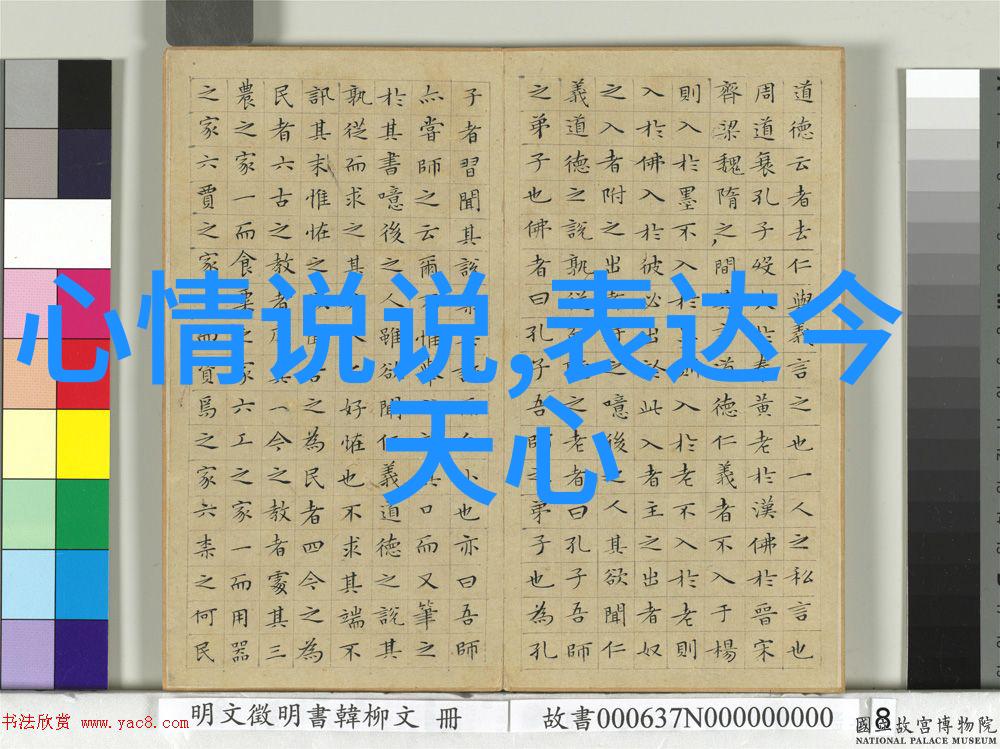 心情说说,表达今
天心
道德云者去仁與義言之也一人之私言也
周道衰孔子没火於秦黄老於漢佛於晉宋
齊梁魏隋之間道德仁義者不入于楊
則入於墨不入於則入於老不入於老則
入於佛入於彼必出於此入者主之出者奴
之入者附之出者之噫後之人其欲聞仁
義道德之說孰從之老者曰孔子吾師
之弟子也佛者曰孔子吾師之弟子也為孔
子者習聞其說小也亦曰吾師
亦嘗師之云爾不惟舉其口而又筆之
於其書噫後之人雖欲聞仁義道德之說其
孰從而求之其好恠也不求其端不
訊其末惟恠之古之為民者四今之為
民者六古之教者其一今之教者處其三
農之家一而食粟之家六工之家一而用器
之家六賈之家而資焉之家六柰之何民
明文徵明書韓柳文 冊
故書000637N000000000
8
書法欣赏 www.yac8.com
國立故宮博物院
NATIONAL PALACE MUSEUM